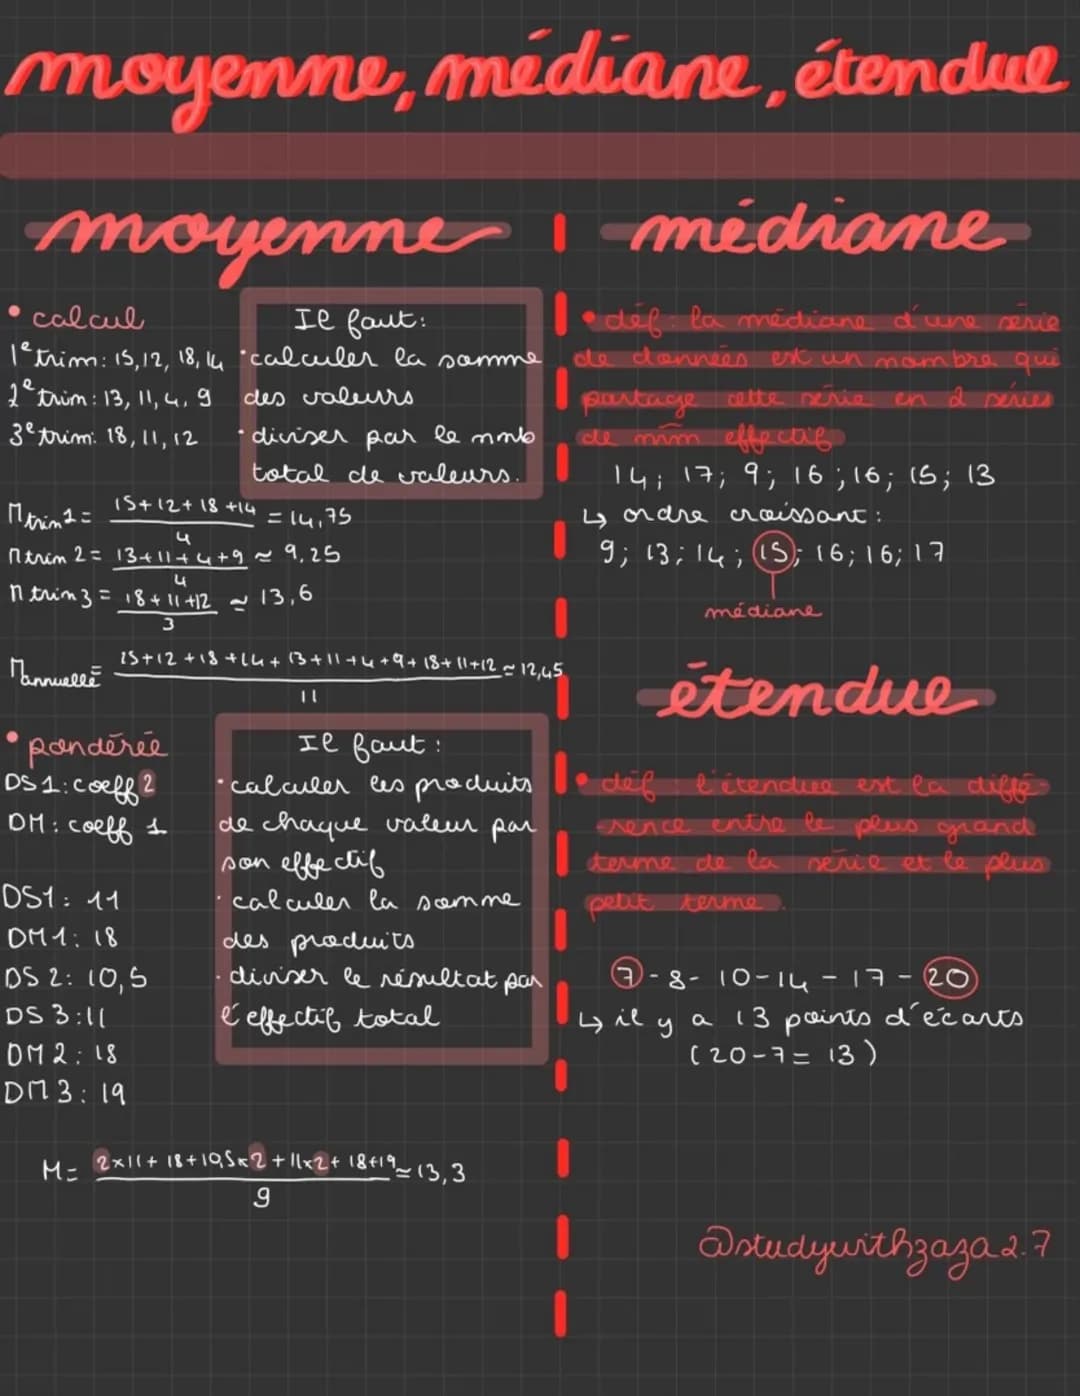 moyenne, médiane, étendue
moyenne
• calcul
1e trim : 15, 12, 18, 14
2e trim : 13, 11, 4, 9
3e trim : 18, 11, 12
Il faut :
• calculer la somme
des valeurs
• diviser par le nmb
total de valeurs.
Mtrim1 = 15+12+18+14 / 4 = 14,75
Mtrim 2 = 13+11+4+9 / 4 ≃ 9,25
Mtrim3 = 18+11+12 / 3 ≃ 13,6
Mannuelle = 15+12+18+14+13+11+4+9+18+11+12 / 11 ≃ 12,45
• pondérée
DS 1 : coeff 2
DM : coeff 1
DS1 : 11
DM1 : 18
DS 2 : 10,5
DS 3 : 11
DM 2 : 18
DM 3 : 19
Il faut :
• calculer les produits
de chaque valeur par
son effectif
• calculer la somme
des produits
• diviser le résultat par
l'effectif total
M = 2×11+18+10,5×2+11×2+18+19 / 9 ≃ 13,3
médiane
• déf : la médiane d'une série
de données est un nombre qui
partage cette série en 2 séries
de mîm effectif
14 ; 17 ; 9 ; 16 ; 16 ; 15 ; 13
↳ ordre croissant :
9 ; 13 ; 14 ; 15 ; 16 ; 16 ; 17
médiane
étendue
• déf : l'étendue est la diffé-
-rence entre le plus grand
terme de la série et le plus
petit terme.
7 - 8 - 10 - 14 - 17 - 20
↳ il y a 13 points d'écarts
(20-7= 13)
@studywithzaza2.7